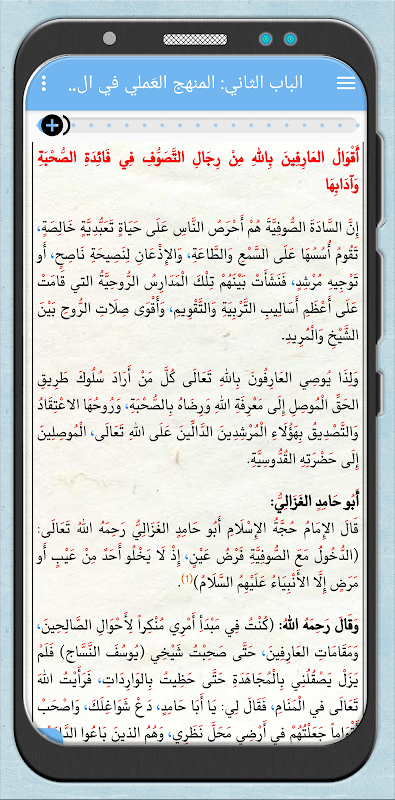 الباب الثاني: المنهج العَملي في ال..
أَقْوَالُ العَارِفِينَ بِاللهِ مِنْ رِجَالِ التَّصَوُّفِ فِي فَائِدَةِ الصُّحْبَةِ
وَآدَابِهَا
إِنَّ السَّادَةَ الصُّوفِيَّةَ هُمْ أَحْرَصُ النَّاسِ عَلَى حَيَاةٍ تَعَبُّدِيَّةٍ خَالِصَةٍ،
تَقُومُ أُسُسُهَا عَلَى السَّمْعِ وَالطَّاعَةِ، وَالإِذْعَانِ لِنَصِيحَةِ نَاصِحٍ، أَو
تَوْجِيهِ مُرْشِدٍ، فَنَشَأَتْ بَيْنَهُمْ تِلْكَ الْمَدَارِسُ الرُّوحِيَّةُ التي قَامَتْ
عَلَى أَعْظَمِ أَسَالِيبِ التَّرْبِيَةِ وَالتَّقْوِيمِ، وَأَقْوَى صِلَاتِ الرُّوحِ بَيْنَ
الشَّيْخِ وَالْمُرِيدِ.
وَلِذَا يُوصِي العَارِفُونَ بِاللهِ تَعَالَى كُلَّ مَنْ أَرَادَ سُلُوكَ طَرِيقِ
الحَقِّ الْمُوصِلِ إِلَى مَعْرِفَةِ اللهِ وَرِضَاهُ بِالصُّحْبَةِ، وَرُوحُهَا الاعْتِقَادُ
وَالتَّصْدِيقُ بِهَؤُلَاءِ الْمُرْشِدِينَ الدَّالِّينَ عَلَى اللهِ تَعَالَى، الْمُوصِلِينَ
إِلَى حَضْرَتِهِ القُدُّوسِيَّةِ.
أَبُو حَامِدٍ الغَزَالِيُّ:
قَالَ الإِمَامُ حُجَّةُ الإِسْلَامِ أَبُو حَامِدٍ الغَزَالِيُّ رَحِمَهُ اللهُ تَعَالَى:
(الدُّخُولُ مَعَ الصُّوفِيَّةِ فَرْضُ عَيْنٍ، إِذْ لَا يَخْلُو أَحَدٌ مِنْ عَيْبٍ أَو
مَرَضٍ إِلَّا الأَنْبِيَاءُ عَلَيْهِمُ السَّلَامُ)(١).
وَقَالَ رَحِمَهُ اللهُ: (كُنْتُ فِي مَبْدَأِ أَمْرِي مُنْكِراً لِأَحْوَالِ الصَّالِحِينَ،
وَمَقَامَاتِ العَارِفِينَ، حَتَّى صَحِبْتُ شَيْخِي (يُوسُفَ النَّسَّاج) فَلَمْ
يَزَلْ يَصْقُلُنِي بِالْمُجَاهَدَةِ حَتَّى حَظِيتُ بِالوَارِدَاتِ، فَرَأَيْتُ اللهَ
تَعَالَى في الْمَنَامِ، فَقَالَ لِي: يَا أَبَا حَامِدٍ، دَعْ شَوَاغِلَكَ، وَاصْحَبْ
أَقْوَاماً جَعَلْتُهُمْ في أَرْضِي مَحَلَّ نَظَرِي، وَهُمُ الذينَ بَاعُوا